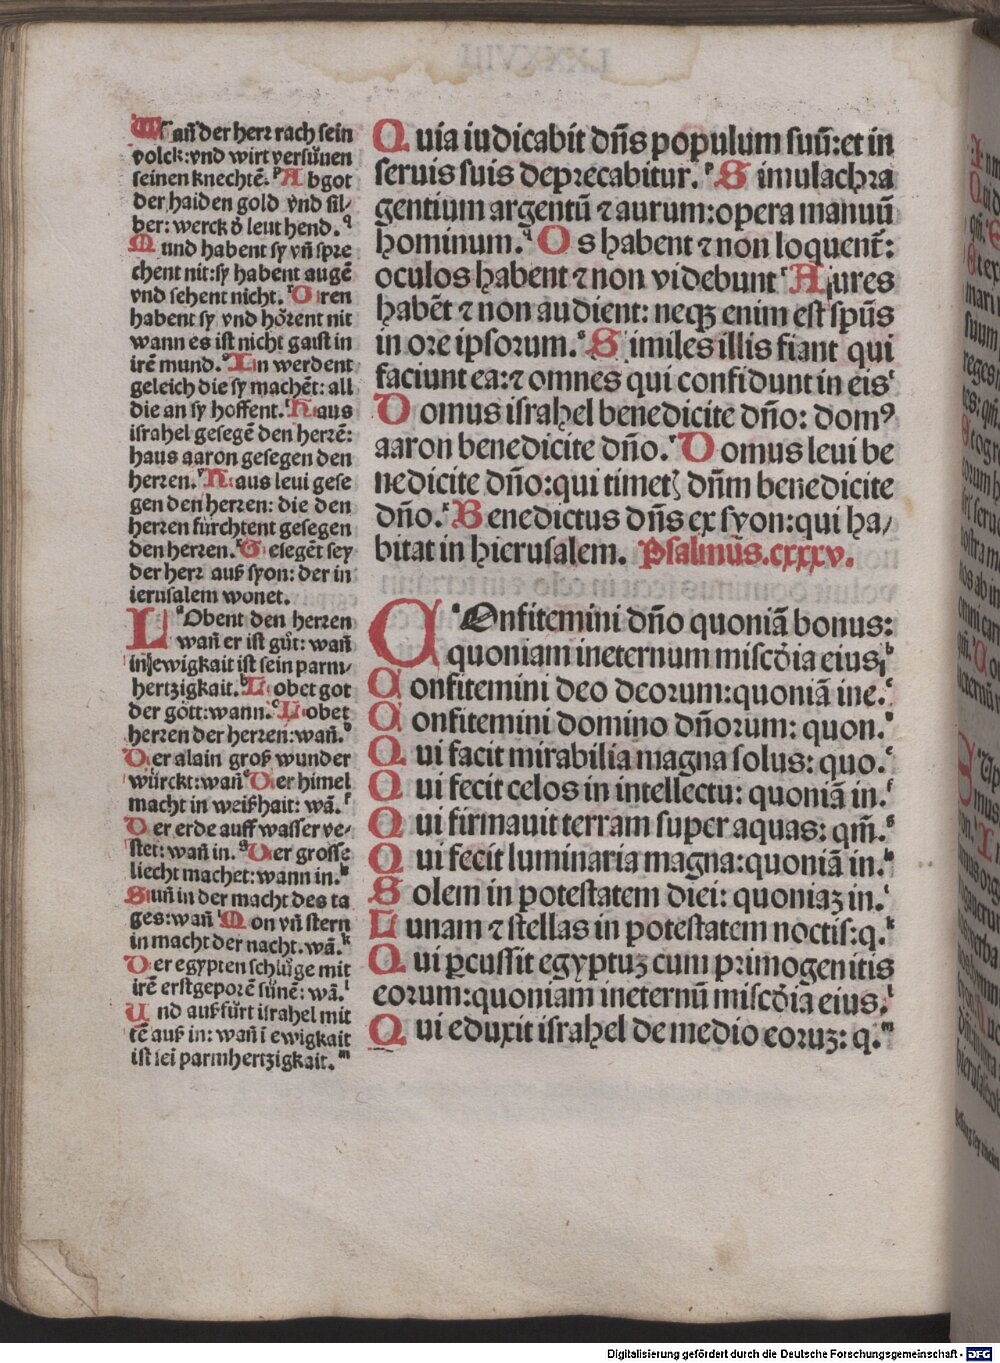 Wañ der herr rach sein
volck: vnd wirt versünen
seinen knechtē. ᵖ Abgot
der haiden gold vnd sil/
ber: werck d̄ leut hend. ᑫ
Mund habent sy vñ spre
chent nit: sy habent augē
vnd sehent nicht. ʳ Oren
habent sy vnd hörent nit
wann es ist nicht gaist in
irē mund. ˢ In werdent
geleich die sy machēt: all
die an sy hoffent. ᵗ Haus
israhel gesegē den herrē:
haus aaron gesegen den
herren. ᵛ Haus leui gese
gen den herren: die den
herren fürchtent gesegen
den herren. ˣ Gesegēt sey
der herr auß syon: der in
ierusalem wonet.
LObent den herren
wañ er ist gůt: wañ
in ewigkait ist sein parm/
hertzigkait. ᵇ Lobet got
der gött: wann. ᶜ Lobet
herren der herren: wañ. ᵈ
Der alain groß wunder
würckt: wañ ᵉ Der himel
macht in weißhait: wā. ᶠ
Der erde auff wasser ve/
stet: wañ in. ᵍ Der grosse
liecht machet: wann in. ʰ
Suñ in der macht des ta
ges: wañ ⁱ Mon vñ stern
in macht der nacht. wā. ᵏ
Der egypten schlůge mit
irē erstgeporē sünē: wā. ˡ
Und außfürt israhel mit
tē auß in: wañ ī ewigkait
ist sei parmhertzigkait. ᵐ
Quia iudicabit dñs populum suū: et in
seruis suis deprecabitur. ᵖ Simulachra
gentium argentū ⁊ aurum: opera manuū
hominum. ᑫ Os habent ⁊ non loquent̄:
oculos habent ⁊ non videbunt ʳ Aures
habēt ⁊ non audient: neqꝫ enim est spūs
in ore ipsorum. ˢ Similes illis fiant qui
faciunt ea: ⁊ omnes qui confidunt in eis ᵗ
Domus israhel benedicite dño: domꝰ
aaron benedicite dño. ᵛ Domus leui be
nedicite dño: qui timetꝭ dñm benedicite
dño. ˣ Benedictus dñs ex syon: qui ha/
bitat in hierusalem. Psalmus. cxxxv.
ᵃ COnfitemini dño quoniā bonus:
quoniam ineternum miscd̄ia eius ᵇ
Confitemini deo deorum: quoniā ine. ᶜ
Confitemini domino dñorum: quon. ᵈ
Qui facit mirabilia magna solus: quo. ᵉ
Qui fecit celos in intellectu: quoniā in. ᶠ
Qui firmauit terram super aquas: qm̄. ᵍ
Qui fecit luminaria magna: quoniā in. ʰ
Solem in potestatem diei: quoniaꝫ in. ⁱ
Lunam ⁊ stellas in potestatem noctis: q. ᵏ
Qui ꝑcussit egyptuꝫ cum primogenitis
eorum: quoniam ineternū miscd̄ia eius. ˡ
Qui eduxit israhel de medio eoruꝫ: q. ᵐ
Digitalisierung gefördert durch die Deutsche Forschungsgemeinschaft - DFG